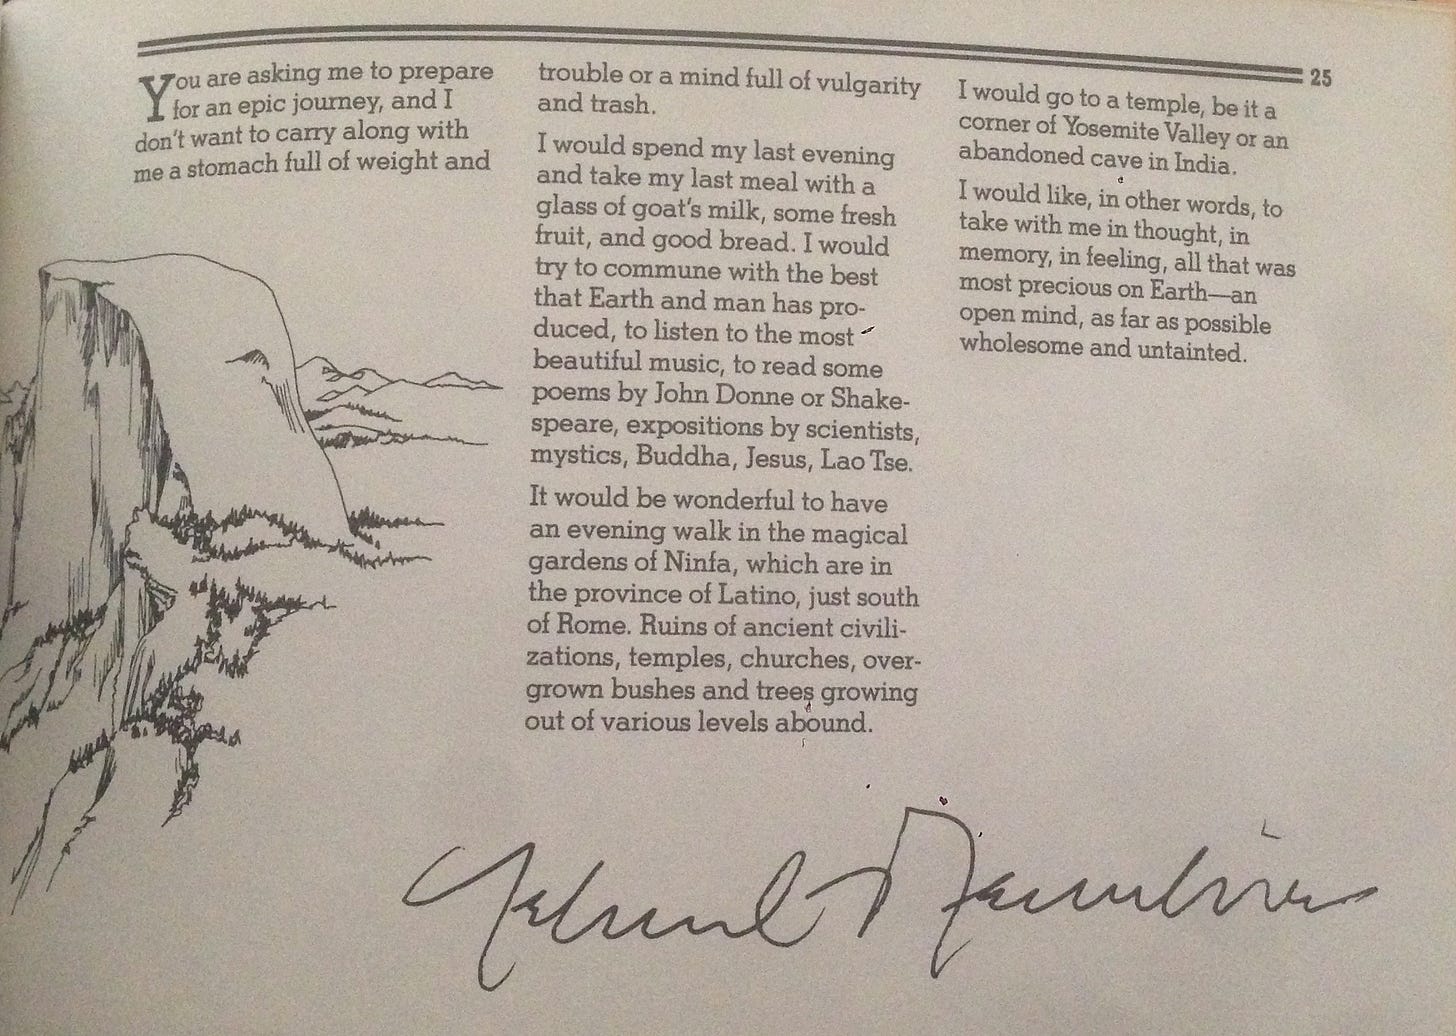 25
You are asking me to prepare
for an epic journey, and I
don't want to carry along with
me a stomach full of weight and
trouble or a mind full of vulgarity
and trash.
I would spend my last evening
and take my last meal with a
glass of goat's milk, some fresh
fruit, and good bread. I would
try to commune with the best
that Earth and man has pro-
duced, to listen to the most
beautiful music, to read some
poems by John Donne or Shake-
speare, expositions by scientists,
mystics, Buddha, Jesus, Lao Tse.
It would be wonderful to have
an evening walk in the magical
gardens of Ninfa, which are in
the province of Latino, just south
of Rome. Ruins of ancient civili-
zations, temples, churches, over-
grown bushes and trees growing
out of various levels abound.
I would go to a temple, be it a
corner of Yosemite Valley or an
abandoned cave in India.
I would like, in other words, to
take with me in thought, in
memory, in feeling, all that was
most precious on Earth—an
open mind, as far as possible
wholesome and untainted.